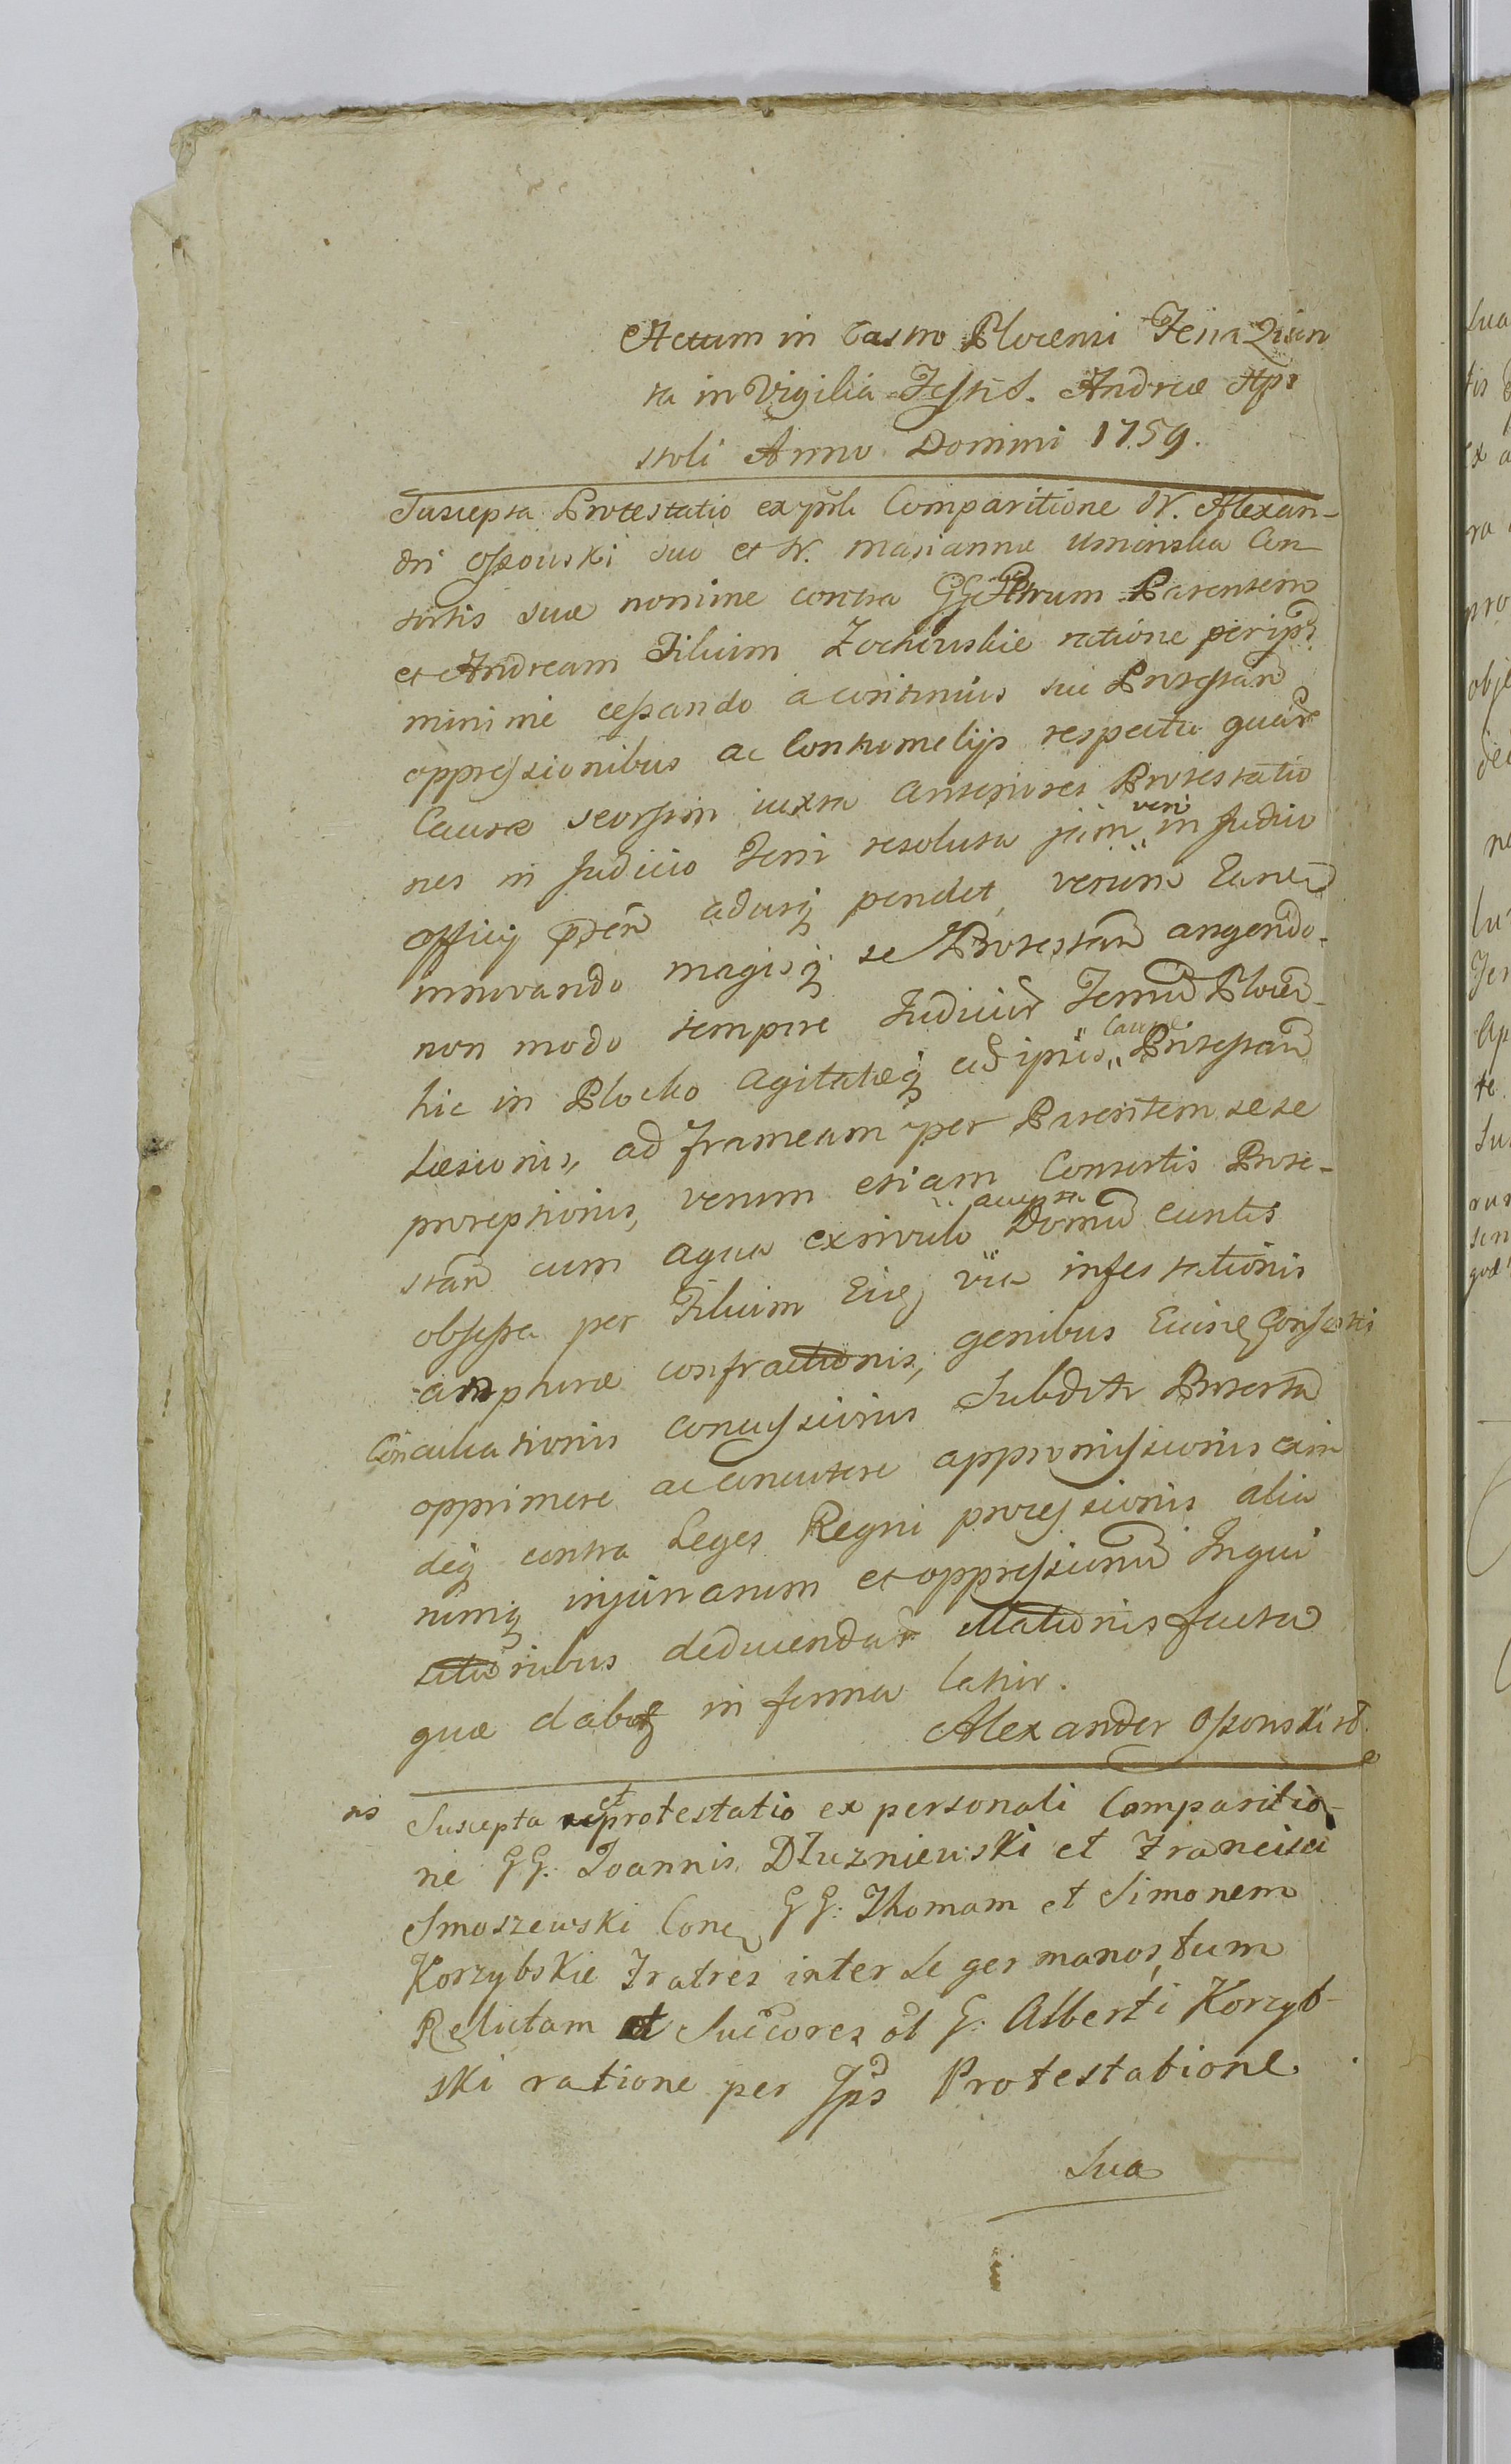 Actum in Castro Plocensi Feria Quin
ta in Vigilia Festi S. Andreæ Apo
stoli Anno Domini 1759.
Suscepta Protestatio ex prli Comparitione N. Alexan-
dri Ossowski suo et N. Mariannæ Uminska Con
sortis suæ nomine contra GG Petrum Parentem
et Andream Filium Zochowskie ratione per ips
minime cessando a continuis sui Protestan
oppressionibus ac Contumelijs respectu quar
Causa seorsim iuxta Anteriores Protestatio
nes in Judicio Terri resoluta jam veri in Judicio
Officij pden adusq pendet, verum tamen
innovando magisq se Protestan angendo.
non modo tempore Judicior Terrium Plocen-
hic in Plocko Agitatæq ad ipsius Causæ Protestan
Læsionis, ad frameam per Parentem sese
proreptionis, verum etiam Consortis Prote-
stan cum aqua ex rivulo accepta Domum euntis
obsessa per Filium Eius via infestationis
amphoræ confractionis, genibus Eiusdem Consortis
Conculcationis concussionis Subditos Protestan
opprimere ac concutere appromissionis eam
deq contra Leges Regni processionis alia
rumq injuriarum et oppressionum Inqui
sitionibus deducendar illationis facta
quæ dabitur in forma latior.
Alexander Ossowski
Suscepta et protestatio ex personali Comparitio-
ne GG. Joannis Dłuzniewski et Francisci
Smoszewski Con GG. Thomam et Simonem
Korzybskie Fratres inter se germanos, tum
Relictam et Succores ol G. Alberti Korzyb-
ski ratione per Ips Protestatione
Sua